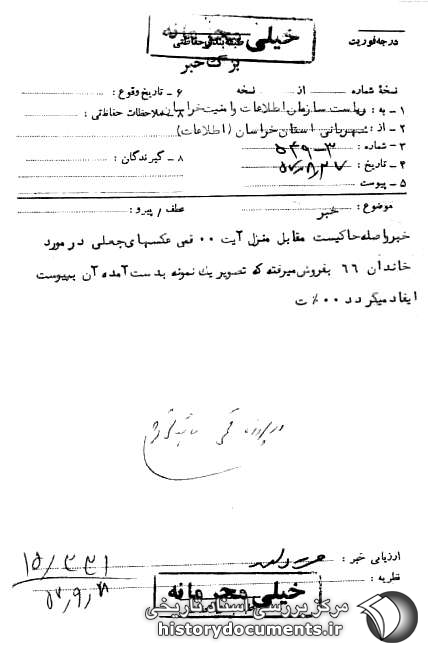 خیلی محرمانه
درجه فوریت
طبقه بندی حفاظتی
برگ خبر
نسخهٔ شماره از نسخه
۶ - تاریخ وقوع :
۱ - به : ریاست سازمان اطلاعات و امنیت خراسان
۸ - ملاحظات حفاظتی :
۲ - از : شهربانی استان خراسان (اطلاعات)
۳ - شماره : ۳-۵۴۹
۸ - گیرندگان :
۴ - تاریخ :
۵ - پیوست
موضوع : خبر
عطف / پیرو :
خبر واصله حاکیست مقابل منزل آیت ۰۰ قمی عکسهای جعلی در مورد
خاندان ۶۶ بفروش میرفته که تصویر یک نمونه بدست آمده آن بپیوست
ایفاد میگردد ۰۰٪ ت
در پرونده قمی بایگانی شود
ارزیابی خبر :
نظریه :
۱۵/۳۳۱
۵۷٫۹٫۳
خیلی محرمانه
مرکز بررسی اسناد تاریخی
historydocuments.ir